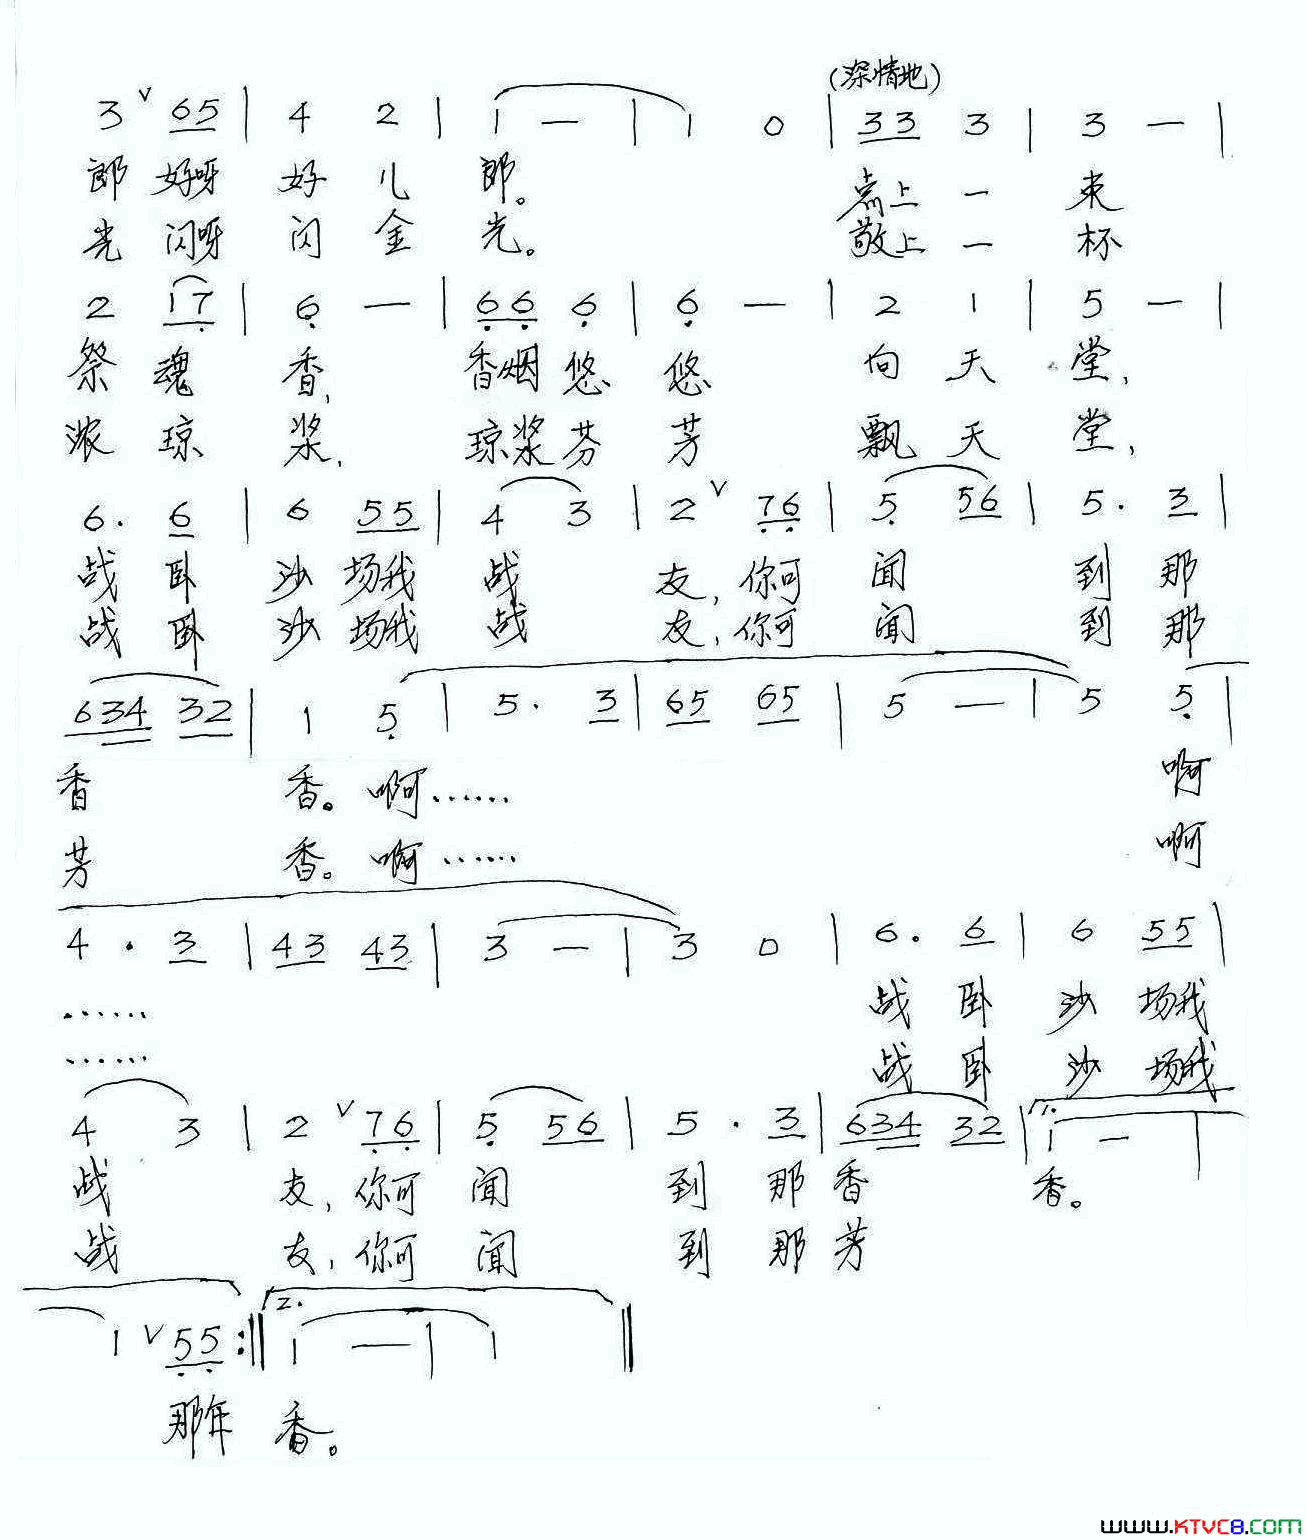 (深情地)
3 ∨ 65 | 4 2 | 1 — | 1 0 | 33 3 | 3 — |
郎 好呀 好 儿 郎。 点上 一 束
光 闪呀 闪 金 光。 敬上 一 杯
2 17 | 6 — | 66 6 | 6 — | 2 1 | 5 — |
祭 魂 香, 香烟 悠 悠 向 天 堂,
浓 琼 浆, 琼浆 芬 芳 飘 天 堂,
6. 6 | 6 55 | 4 3 | 2 ∨ 76 | 5 56 | 5. 3 |
战 卧 沙 场我 战 友, 你可 闻 到 那
战 卧 沙 场我 战 友, 你可 闻 到 那
634 32 | 1 5 | 5. 3 | 65 65 | 5 — | 5 5 |
香 香。 啊…… 啊
芳 香。 啊…… 啊
4. 3 | 43 43 | 3 — | 3 0 | 6. 6 | 6 55 |
…… 战 卧 沙 场我
…… 战 卧 沙 场我
4 3 | 2 ∨ 76 | 5 56 | 5. 3 | 634 32 | 1. 1 — |
战 友, 你可 闻 到 那 香 香。
战 友, 你可 闻 到 那 芳
1 ∨ 55 :‖ 2. 1 — | 1 ‖
那年 香。
www.KTVC8.com